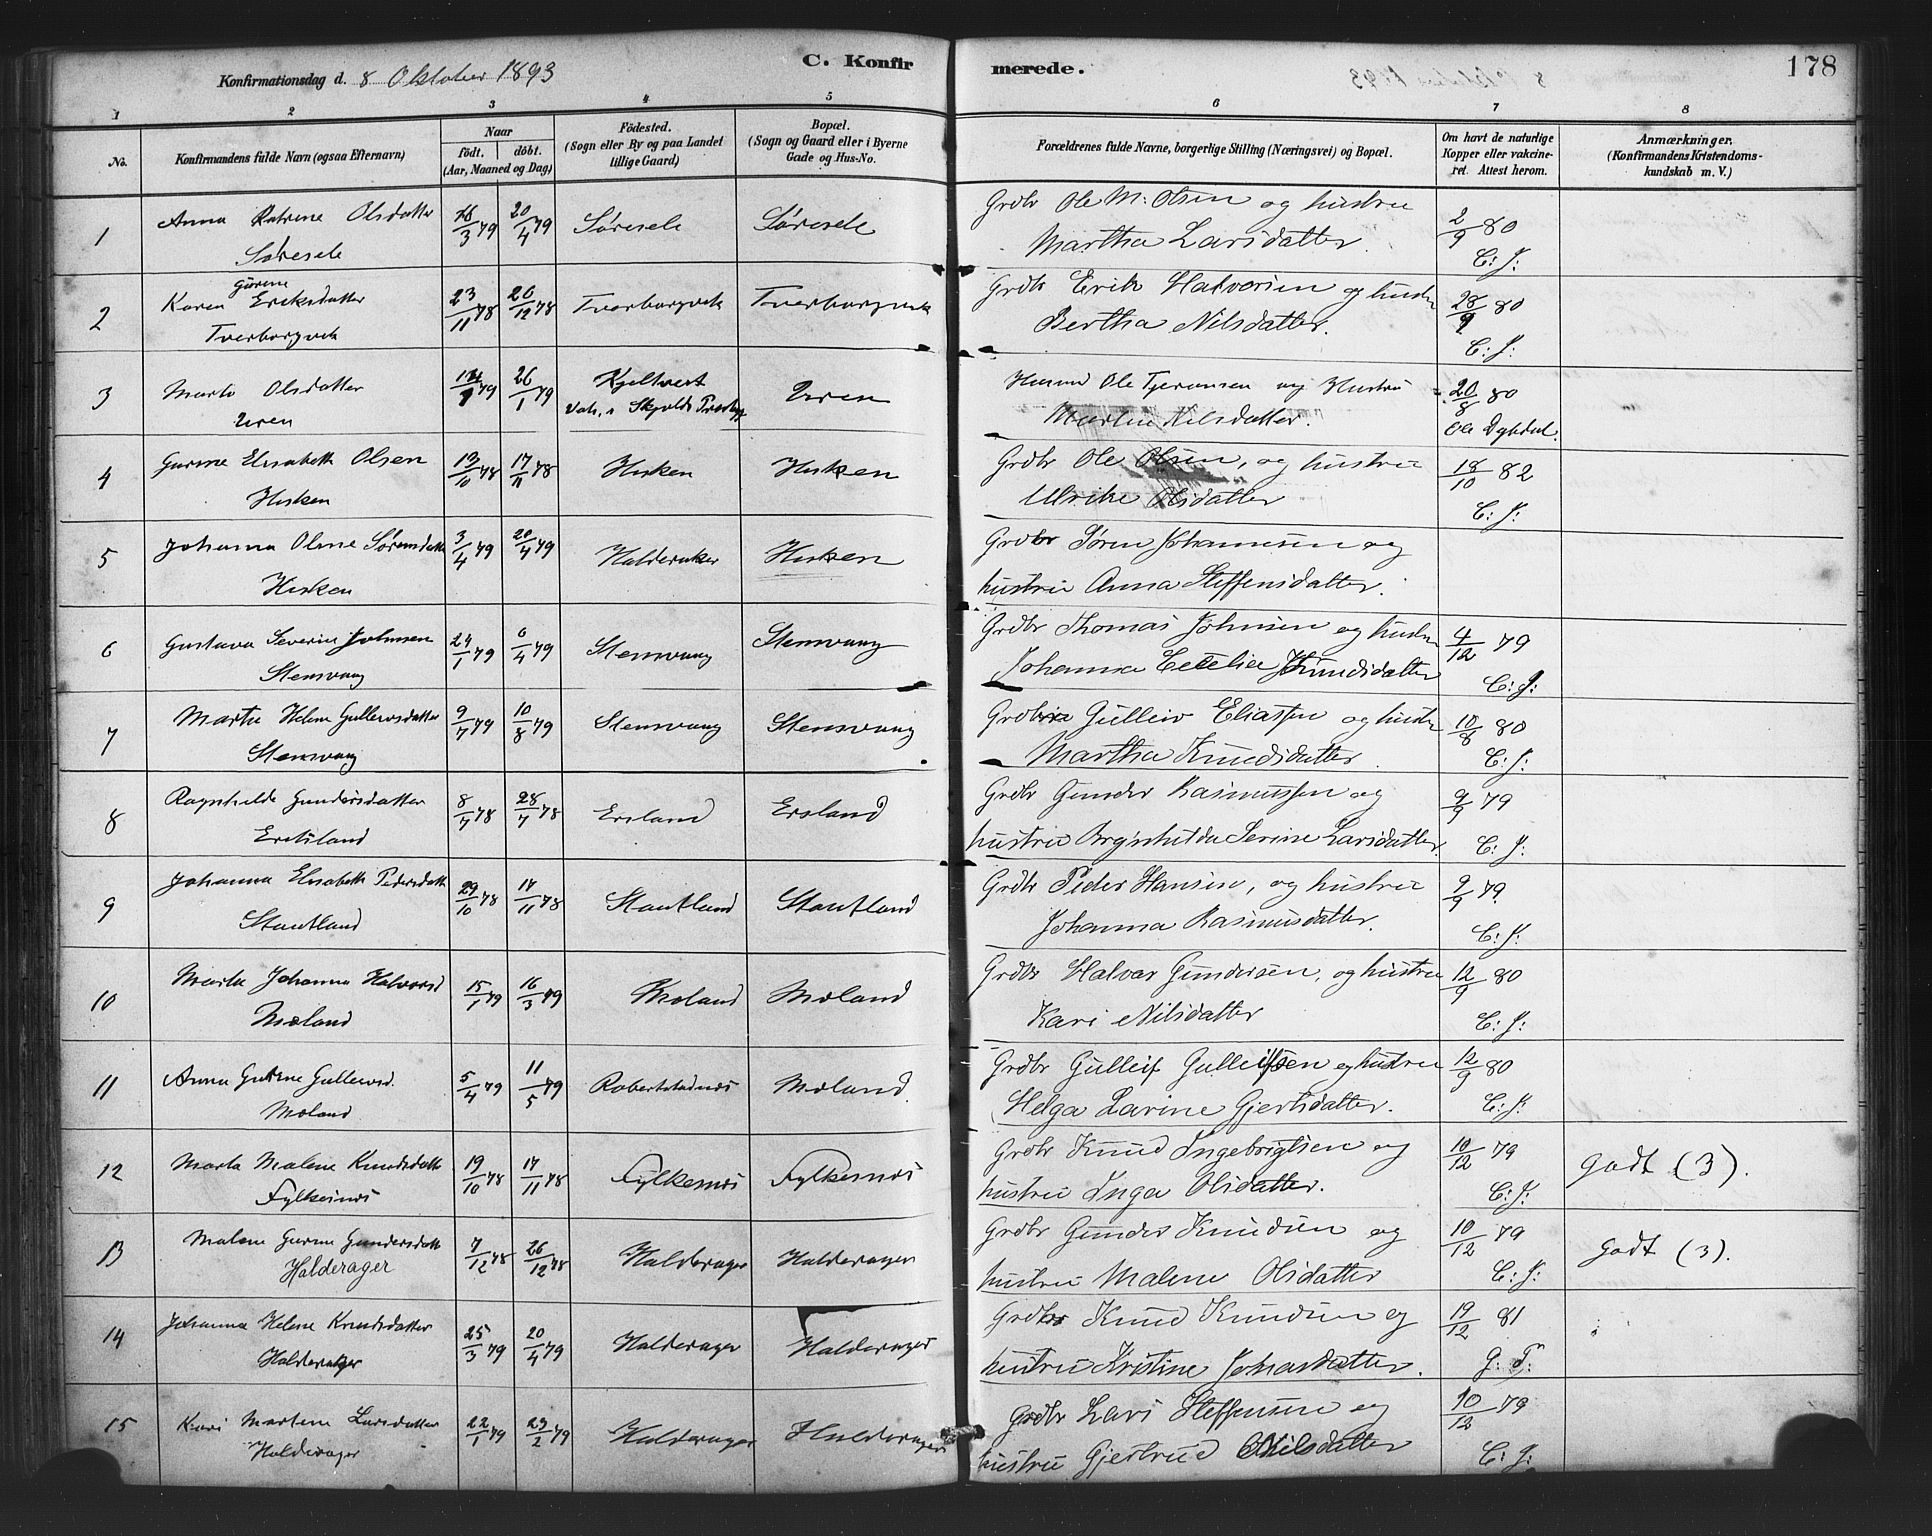 Konfirmationsdag d. 8 Oktober 1893
C. Konfirmerede.
178
1 2 3 4 5 6 7 8
No.
Konfirmandens fulde Navn (ogsaa Efternavn)
Naar
födt. döbt.
(Aar, Maaned og Dag)
Födested.
(Sogn eller By og paa Landet
tillige Gaard)
Bopæl.
(Sogn og Gaard eller i Byerne
Gade og Hus-No.
Forældrenes fulde Navne, borgerlige Stilling (Næringsvei) og Bopæl.
Om havt de naturlige
Kopper eller vakcine-
ret. Attest herom.
Anmærkninger.
(Konfirmandens Kristendoms-
kundskab m. V.)
1 Anna Katrine Olsdatter 20/4 79 Söresele Söresele Grdbr Ole M. Olsen og hustru 2/9 80
Söresele Martha Larsdatter. C: J:
2 Karen Gurine Eriksdatter 23/11 78 26/12 78 Tverborgvik Tverborgvik Grdb Erik Halvorsen og hustru 28/9 80
Tverborgvik Bertha Nilsdatter. C: J:
3 Marta Olsdatter 26/1 79 Husmd Ole og Hustru 20/8 80
Uren Uren Nilsdatter. Ole Dybdal.
4 Gurine Elisabeth Olsen 13/10 78 17/11 78 Hisken Hisken Grdbr Ole Olsen, og hustru 18/10 82
Hisken Ulrike Olsdatter C: J:
5 Johanna Oline Sörensdatt 3/4 79 20/4 79 Halderaker Hisken Grdbr Sören Johannesen og
Hisken hustru Anna Steffensdatter.
6 Gustava Severine Johnsen 24/1 79 6/4 79 Stensvaag Stensvaag Grdbr Thomas Johnsen og hustru 4/12 79
Stensvaag Johanna Cecelia Knudsdatter C: J:
7 Marta Helene Gulleivsdatter 9/7 79 10/8 79 Stensvaag Stensvaag Grdbr Gulleiv Eliassen og hustru 10/8 80
Stensvaag Martha Knudsdatter. C: J:
8 Ragnhilde Gundersdatter 8/7 78 28/7 78 Ersland Ersland Grdbr Gunder Rasmussen og 9/9 79
hustru Serine Larsdatter. C: J:
9 Johanna Elisabeth Pedersdatt 29/10 78 17/11 78 Stautland Stautland Grdbr Peder Hansen, og hustru 9/9 79.
Stautland Johanna Rasmusdatter. C: J:
10 Marta Johanna Halvorsd 15/1 79 16/3 79 Mæland Mæland Grdbr Halvor Gundersen, og hustru 12/9 80
Mæland Kari Nilsdatter C: J:
11 Anna Gurine Gulleivsd. 5/4 79 11/5 79 Mæland Grdbr Gulleif Gulleifsen og hustru 12/9 80
Mæland Helga Larine Gjertsdatter. C: J:
12 Marta Malene Knudsdatt 19/10 78 17/11 78 Fylkesnæs Fylkesnæs Grdbr Knud Ingebrigtsen og 10/12 79 godt (3).
Fylkesnæs hustru Inga Olsdatter. C: J:
13 Malene Gurine Gundersdatt 7/12 78 26/12 78 Halderager Halderager Grdbr Gunder Knudsen og 10/12 79 godt (3).
Halderager hustru Malene Olsdatter C: J:
14 Johanna Helene Knudsdatter 25/3 79 20/4 79 Halderager Halderager Grdbr Knud Knudsen og 19/12 81
Halderager hustru Kristine Johansdatter. G: T:
15 Kari Martene Larsdatter 22/1 79 23/2 79 Halderager Halderager Grdbr Lars Steffensen og 10/12 79
Halderager hustru Gjertrud Nilsdatter C: J: